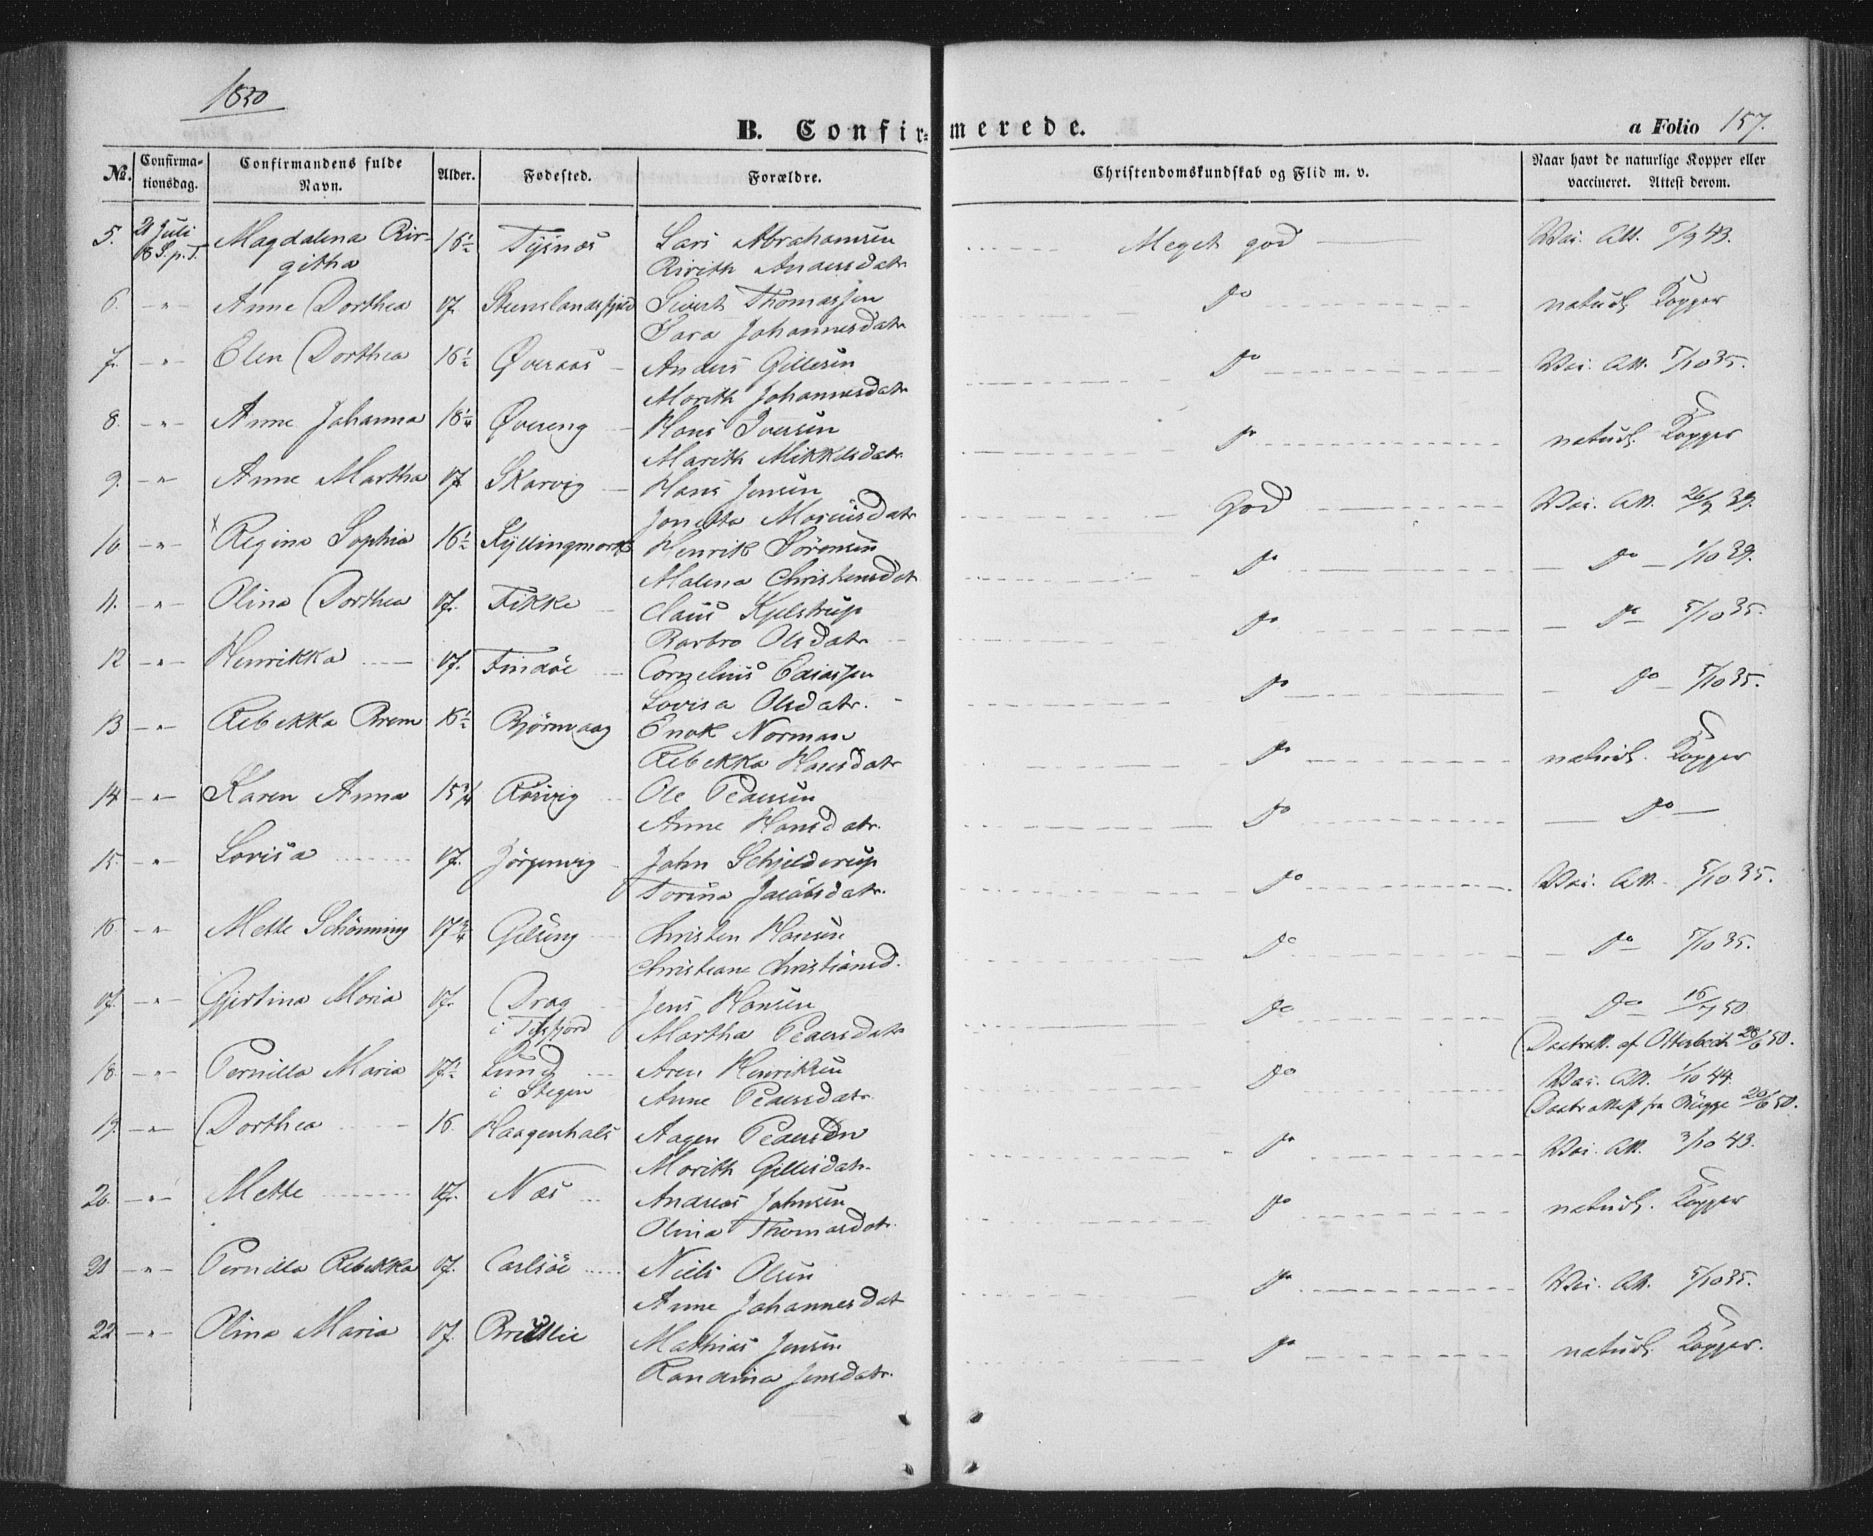 1850
B. Confirmerede.
a Folio 157.
No. Confirmationsdag. Confirmandens fulde Navn. Alder. Fødested. Forældre. Christendomskundskab og Flid m. v. Naar havt de naturlige Kopper eller vaccineret. Attest derom.
5. 21 Juli 16½ Tysnes Lars Abrahamsen Meget god Vac. Att. 43.
8 S. p. T. Magdalena Birgitha Birith Andersdatr
6. -"- Anne Dorthea 17. Steenslandsfjord Sivert Thomassen do naturl. Kopper
Sara Johannesdatr
7. -"- Elen Dorthea 16½ Øveraas Anders Gillesen do Vac. Att. 5/10 35.
Morith Johannesdatr
8. -"- Anne Johanna 18¼ Øvereng Hans Iversen do naturl. Kopper
Marith Mikkelsdatr
9. -"- Anne Martha 17 Skarvig Hans Jensen God Vac. Att. 26/9 39.
Jonetta Marcusdatr
10 -"- x Regina Sophia 16½ Kyllingmark Henrik Sørensen do do 1/10 39.
Malena Christensdat
11. -"- Olina Dorthea 17. Fikke Claus Kjelstrup do do 5/10 35.
Barbro Olsdatr
12 -"- Henrikka 17. Findøe Cornelius Eriassen do do 5/10 35.
Lovisa Olsdatr.
13 -"- Rebekka Brem 16½ Bjørnvaag Enok Norman do naturl. Kopper
Rebekka Hansdatr
14 -"- Karen Anna 15¾ Rørvig Ole Pedersen do do
Anne Hansdatr.
15. -"- Lovisa 17. Jørgenvig John Schjelderup do Vac. Att. 5/10 35.
Torina Jacobsdatr.
16 -"- Mette Schønning 17¾ Gilling Christen Hansen do do 5/10 35.
Christiane Christiansd.
17. -"- Gjertina Maria 17. Drag i Tysfjord Jens Hansen do do 16/7 50
Martha Pedersdatr (Daabsatt. af Otterbech 28/6 50.
18 -"- Pernilla Maria 17½ Lund i Stegen Aren Henriksen do Vac. Att. 1/10 44.
Anne Pedersdatr. (Daabsattest fra Bugge 20/6 50.
19. -"- Dorthea 16 Haagenhals Aagen Pedersen do Vac. Att. 3/10 43.
Morith Gillisdatr.
20. -"- Mette 17. Næs Andreas Johnsen do naturl. Kopper
Olina Thomasdatr.
21 -"- Pernilla Rebekka 17. Carlsøe Niels Olsen do Vac. Att. 5/10 35.
Anne Johannesdat
22 -"- Olina Maria 17. Bredlie Mathias Jensen do naturl. Kopper.
Randina Jensdatr.